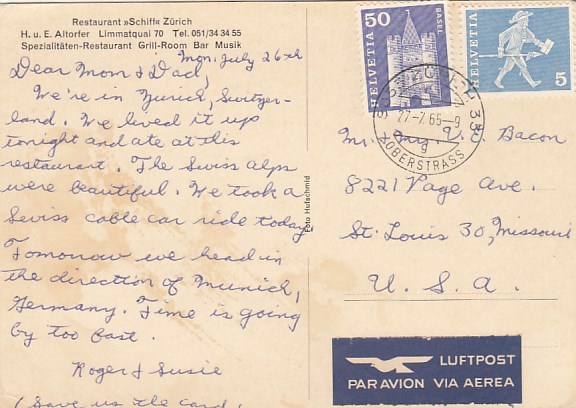 Restaurant »Schiffe Zürich
H. u. E. Altorfer Limmatquai 70 Tel. 051/34 34 55
Spezialitäten-Restaurant Grill-Room Bar Musik
Mon, July 26th
Dear Mom & Dad,
We're in Zurich, Switzer-
land. We lived it up
tonight and ate at this
restaurant. The Swiss alps
were beautiful. We took a
Swiss cable car ride today.
Tomorrow we head in
the direction of Munich,
Germany. Time is going
by too fast.
Roger & Susie
(Save us the card.
Foto Hufschmid
50
HELVETIA
BASEL
HELVETIA
5
27-7.65-9
9
OBERSTRASS
Mr. V. Bacon
8221 Page Ave.
St. Louis 30, Missouri
U. S. A.
LUFTPOST
PAR AVION VIA AEREA